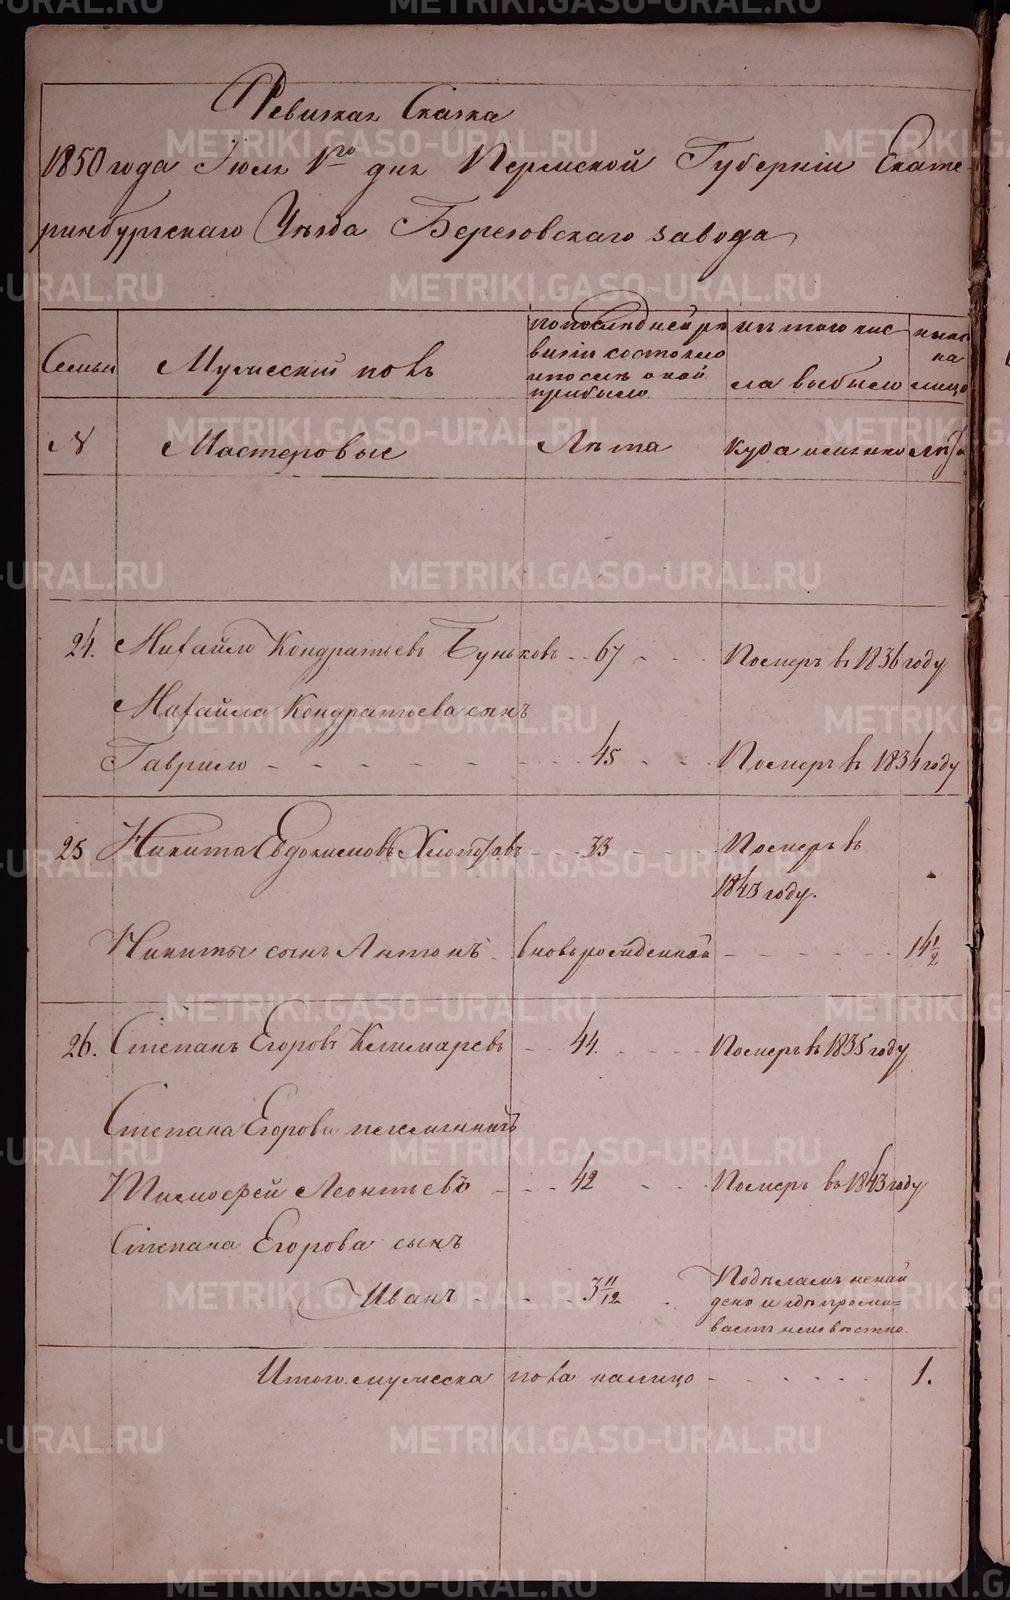 Ревизкая Сказка
1850 года Июля 1го дня Пермской Губернiи Екате-
ринбургскаго Уѣзда Березовскаго завода
Семьи
Мужескiй полъ
по последней ре
визiи состояло
и после оной
прибыло
изъ того чис
ла выбыло
ныне
на
лицо
N
Мастеровые
Лѣта
Куда именно
лѣта
24. Михайло Кондратьевъ Буньковъ 67 Померъ въ 1836 году
Михайла Кондратьева сынъ
Гаврило 45 Померъ въ 1834 году
25 Никита Евдокимовъ 33 Померъ въ
1843 году.
Никиты сынъ Антонъ вновьрожденной 14 1/2
26. Степанъ Егоровъ 44. Померъ въ 1835 году
Степана Егорова племянникъ
Тимофей Леонтьевъ 42 Померъ въ 1843 году
Степана Егорова сынъ
Иванъ 3 11/12
По дѣламъ не най
дено и где прожи=
ваетъ неизвѣстно.
Итого мужеска пола налицо 1.
METRIKI.GASO-URAL.RU